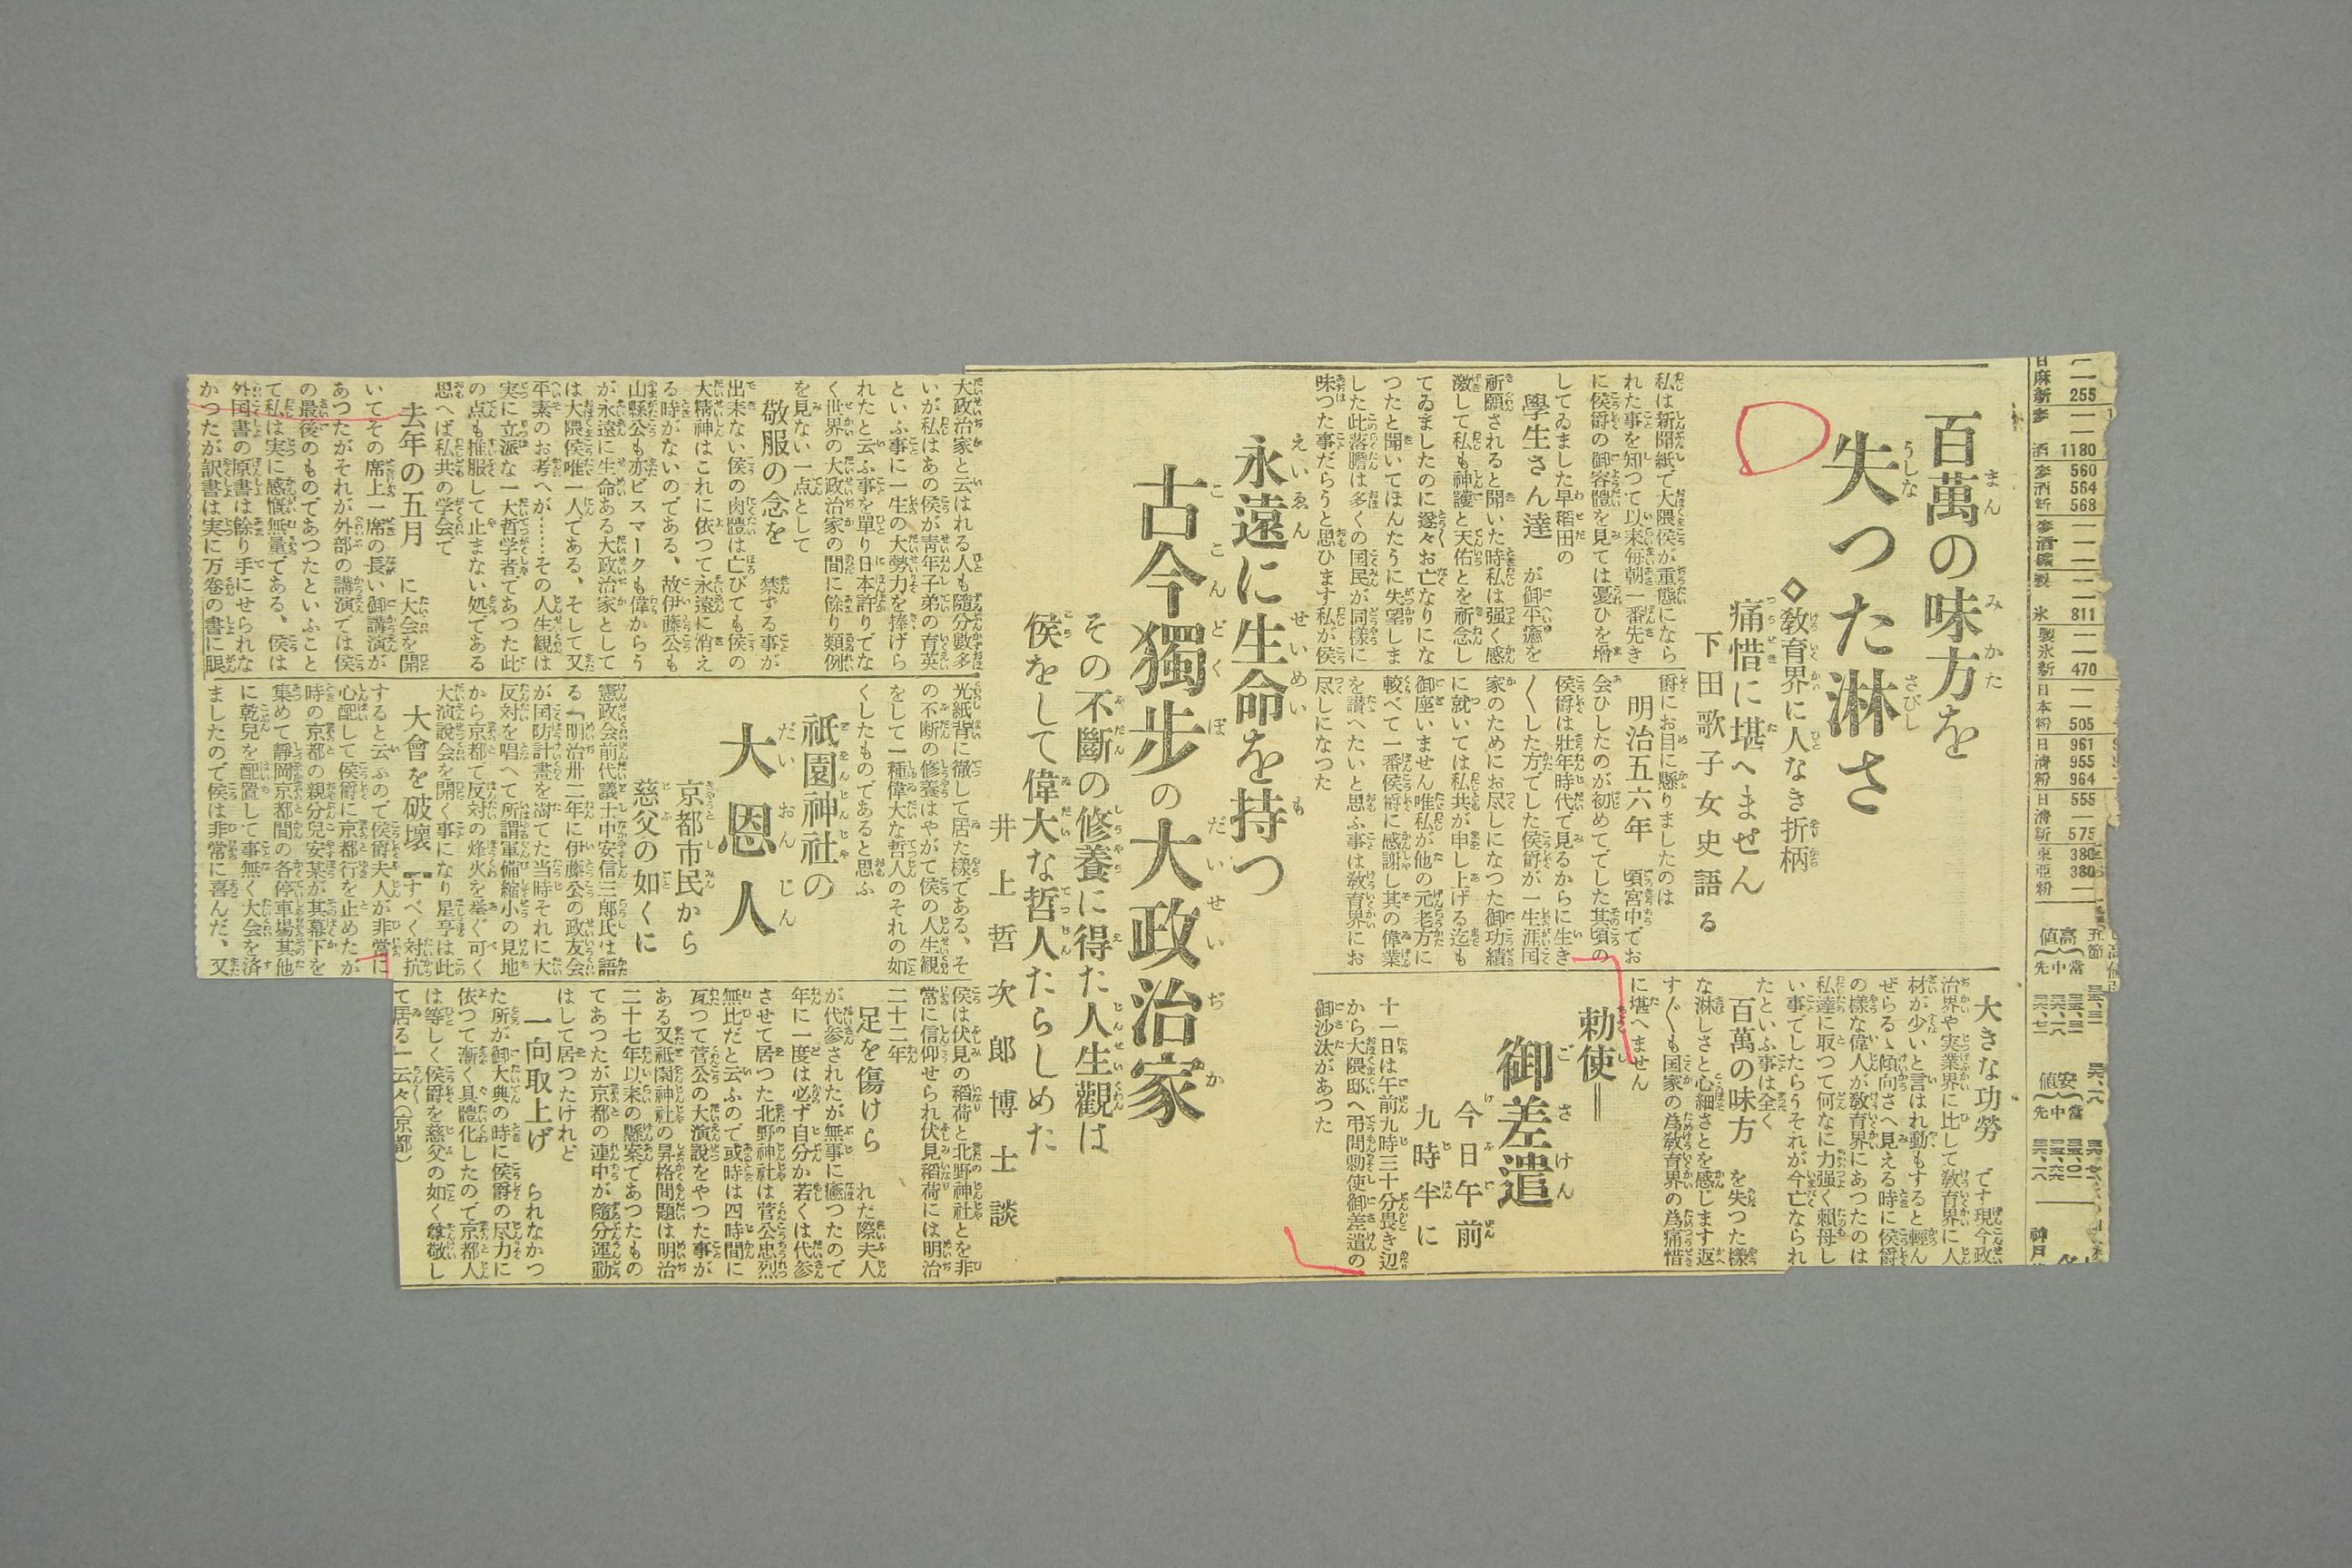 百萬の味方を
失つた淋さ
◇敎育界に人なき折柄
痛惜に堪へません
下田歌子女史語る
私は新聞紙で大隈侯が重態になら
れた事を知つて以来毎朝一番先き
に侯爵の御容軆を見ては憂ひを增
してゐました早稲田の
學生さん達 が御平癒を
祈願されると聞いた時私は强く感
激して私も神護と天佑とを祈念し
てゐましたのに遂々お亡なりにな
つたと聞いてほんたうに失望しま
した此落膽は多くの国民が同樣に
味つた事だらうと思ひます私が侯
爵にお目に懸りましたのは
明治五六年 頃宮中でお
会ひしたのが初めてでした其頃の
侯爵は壮年時代で見るからに生き
〱した方でした侯爵が一生涯国
家のためにお尽しになつた御功績
に就いては私共が申し上げる迄も
御座いません唯私が他の元老方に
較べて一番侯爵に感謝し其の偉業
を讃へたいと思ふ事は敎育界にお
尽しになつた
大きな功勞 です現今政
治界や実業界に比して敎育界に人
材が少いと言はれ動もすると輕ん
ぜらるゝ傾向さへ見える時に侯爵
の樣な偉人が敎育界にあつたのは
私達に取つて何なに力强く賴母し
い事でしたらうそれが今亡なられ
たといふ事は全く
百萬の味方 を失つた樣
な淋しさと心細さとを感じます返
す〲も国家の爲敎育界の爲痛惜
に堪へません
勅使‖
御差遣
今日午前
九時半に
十一日は午前九時三十分畏き辺
から大隈邸へ弔問勅使御差遣の
御沙汰があつた
永遠に生命を持つ
古今獨步の大政治家
その不斷の修養に得た人生觀は
侯をして偉大な哲人たらしめた
井上哲次郎博士談
大政治家と云はれる人も隨分數多
いが私はあの侯が靑年子弟の育英
といふ事に一生の大勢力を捧げら
れたと云ふ事を單り日本許りでな
く世界の大政治家の間に餘り類例
を見ない一点として
敬服の念を 禁ずる事が
出来ない侯の肉軆は亡びても侯の
大精神はこれに依つて永遠に消え
る時がないのである、故伊藤公も
山縣公も亦ビスマークも偉からう
が永遠に生命ある大政治家として
は大隈侯唯一人である、そして又
平素のお考へが……その人生観は
実に立派な一大哲学者であつた此
の点も推服して止まない処である
思へば私共の学会で
去年の五月 に大会を開
いてその席上一席の長い御講演が
あつたがそれが外部の講演では侯
の最後のものであつたといふこと
て私は実に感慨無量である、侯は
外国書の原書は餘り手にせられな
かつたが訳書は実に万卷の書に眼
光紙背に徹して居た樣である、そ
の不断の修養はやがて侯の人生観
をして一種偉大な哲人のそれの如
くしたものであると思ふ
祇園神社の
大恩人
京都市民から
慈父の如くに
憲政会前代議士中安信三郎氏は語
る「明治卅二年に伊藤公の政友会
が国防計畫を樹てた当時それに大
反対を唱へて所謂軍備縮小の見地
から京都で反対の烽火を挙ぐ可く
大演説会を開く事になり星亨は此
大會を破壞 すべく対抗
すると云ふので侯爵夫人が非常に
心配して侯爵に京都行を止めたか
時の京都の親分兒安某が其幕下を
集めて靜岡京都間の各停車場其他
に乾兒を配置して事無く大会を済
ましたので侯は非常に喜んだ、又
侯は伏見の稲荷と北野神社とを非
常に信仰せられ伏見稲荷には明治
二十二年
足を傷けら れた際夫人
が代参されたが無事に癒つたので
年に一度は必ず自分か若くは代参
させて居つた北野神社は菅公忠烈
無比だと云ふので或時は四時間に
亙つて菅公の大演説をやつた事が
ある又祇園神社の昇格問題は明治
二十七年以来の懸案であつたもの
てあつたが京都の連中が隨分運動
はして居つたけれど
一向取上げ られなかつ
た所が御大典の時に侯爵の尽力に
依つて漸く具軆化したので京都人
は等しく侯爵を慈父の如く尊敬し
て居る」云々(京都)
日麻新 255
麥酒 1180
麥酒新 560 564 568
製氷 811
製氷新 470
日本粉 505
日淸粉 961 955 964
日淸新 555 575
東亞粉 380 380
高値
先中當
安値
先中當